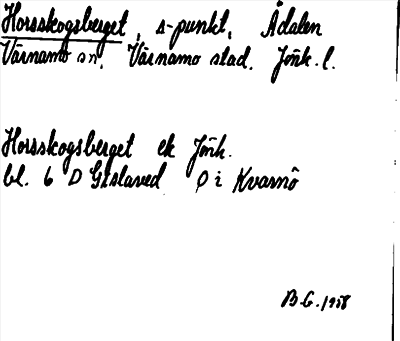 Horsskogsberget, s-punkt, Ådalen
Värnamo sn, Värnamo stad. Jönk. l.
Horsskogsberget ek Jönk.
bl. 6 D Gislaved ρ i Kvarnö
B.G. 1958